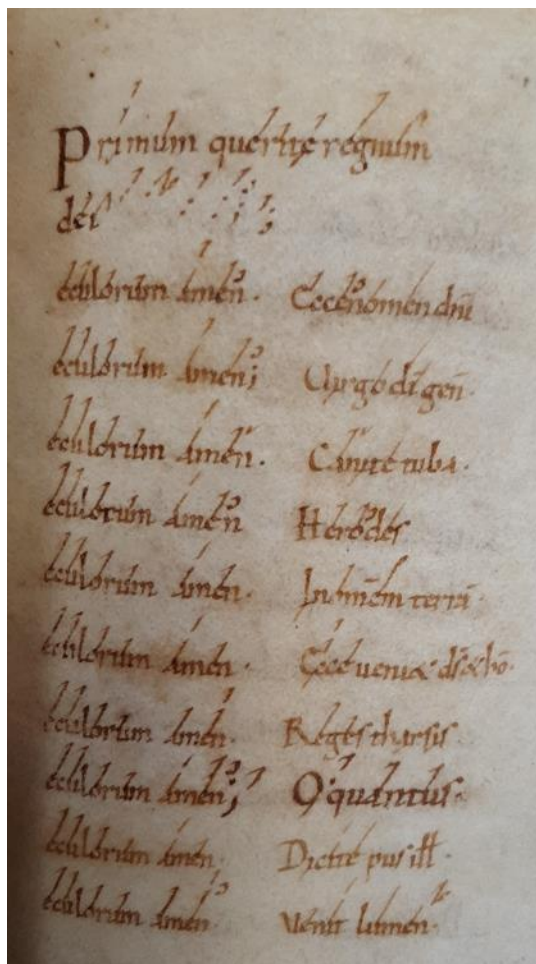 Primum querite regnum
dei
eculorum amen. Ecce nomen dni
eculorum amen; Uirgo di gen.
eculorum amen. Canite tuba.
eculorum amen Herodes
eculorum amen. In omem terra
eculorum amen. Ecce ueni&
eculorum amen. Reges tharsis
eculorum amen; O quantus
eculorum amen. Dicite pusill.
eculorum amen. Venit lumen